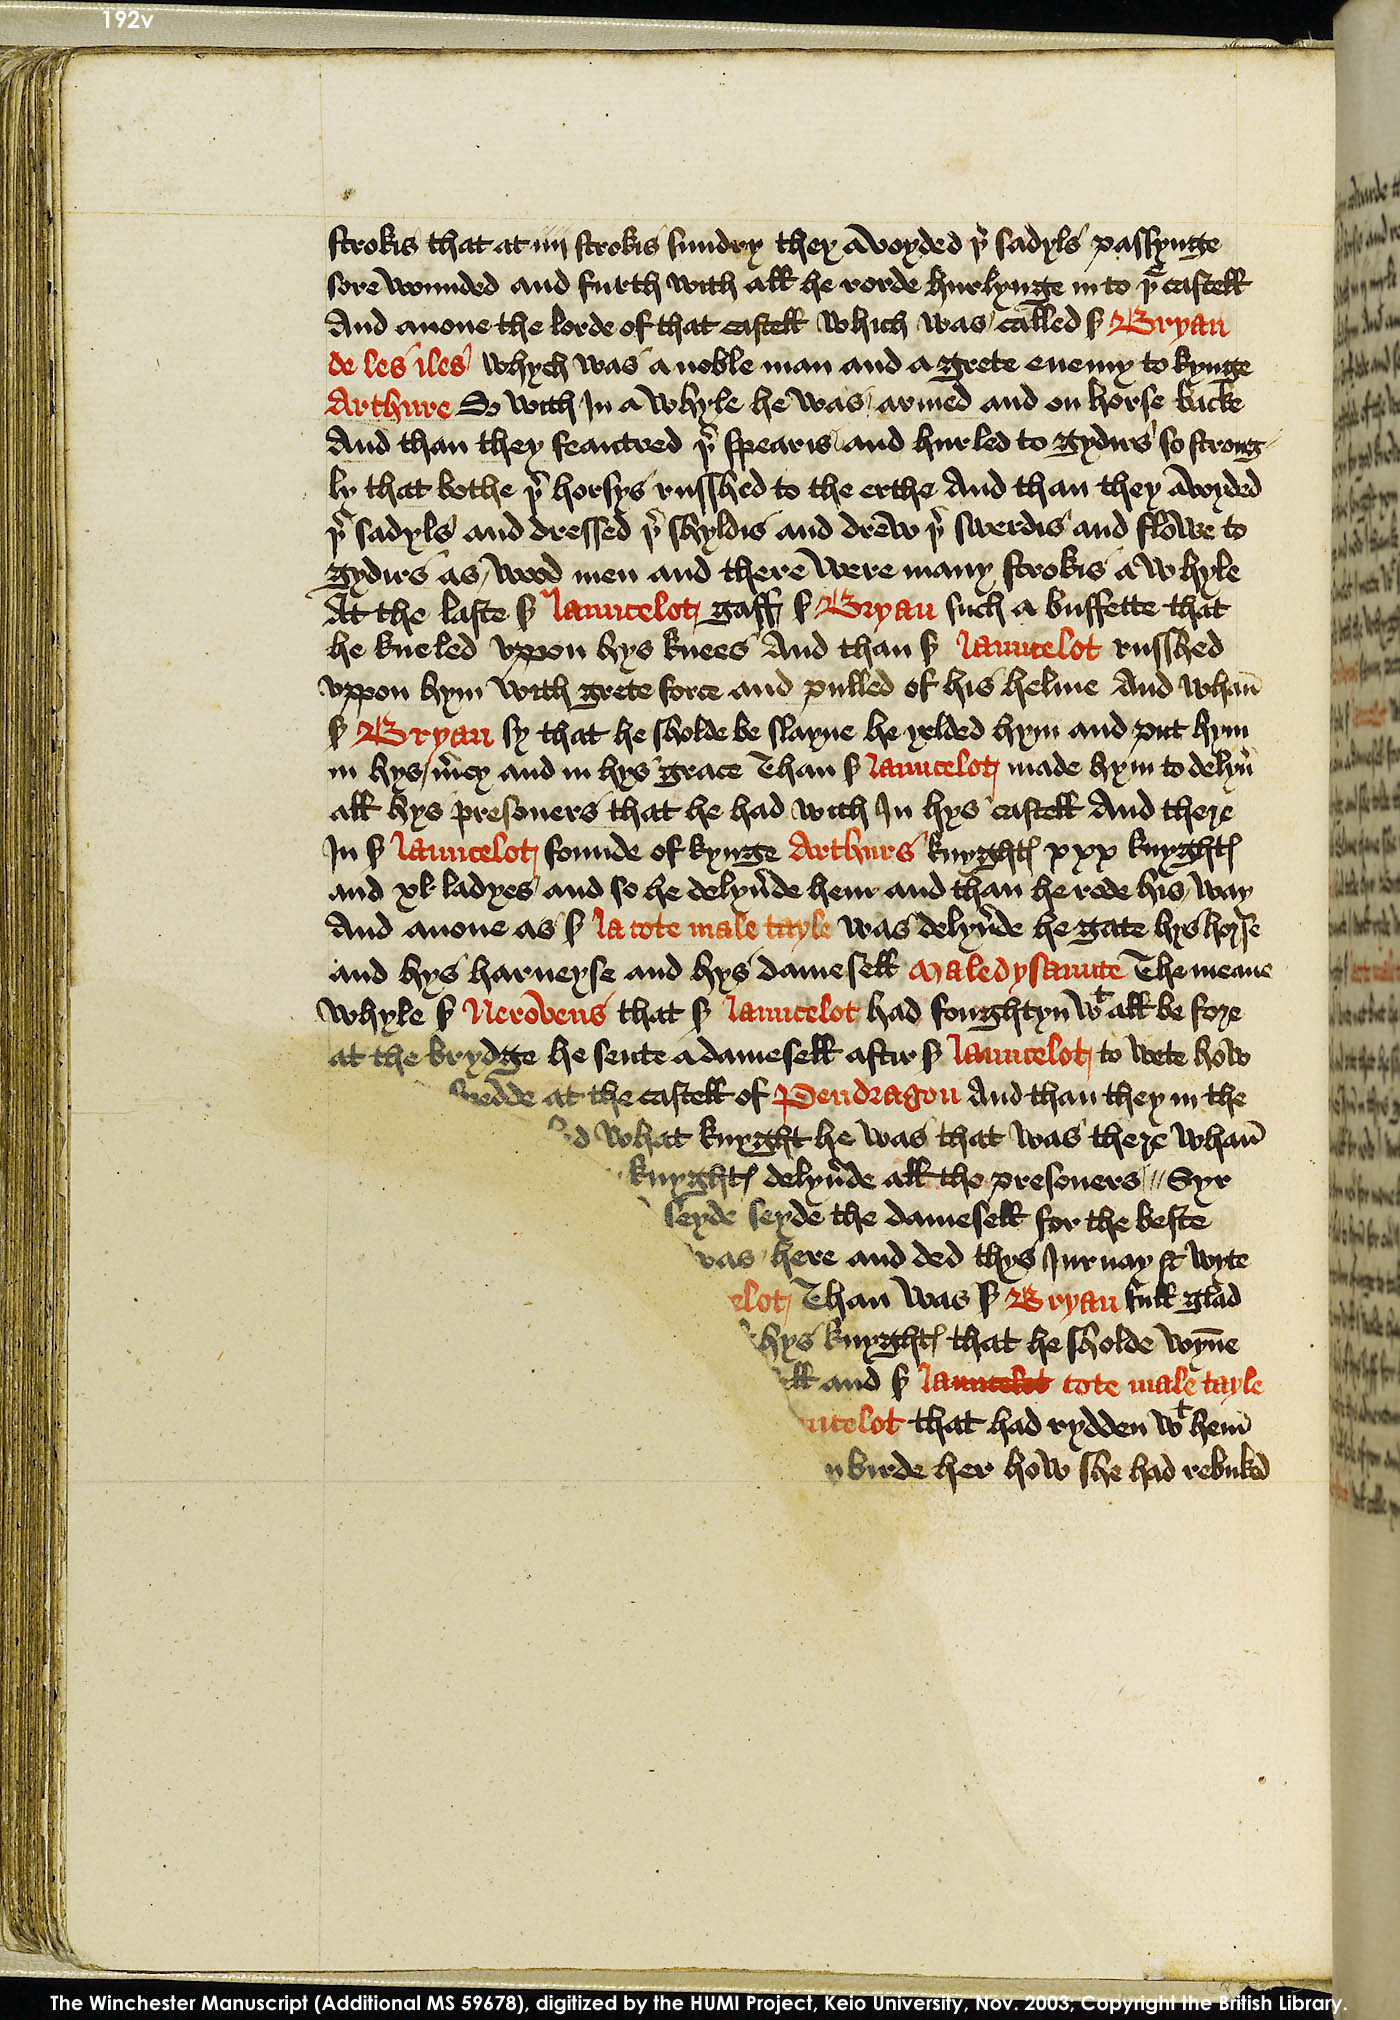 192v
strokis that at iiij strokis sundry they avoyded þr sadyls passynge
sore wounded and furth with all he rorde hurlynge in to þe castell
And anone the lorde of that castell which was called sr Bryan
de les iles whych was a noble man and a grete enemy to kynge
Arthure So with In a whyle he was armed and on horse backe
And than they feautred þr spearis and hurled to gydirs so strong
ly that bothe þr horsys russhed to the erthe And than they avoyded
þr sadyls and dressed þr shyldis and drew þr swerdis and flowe to
gydirs as wood men and there were many strokis a whyle
At the laste sr launcelot gaff sr Bryan such a buffette that
he kneled vppon hys knees And than sr launcelot russhed
vppon hym with grete force and pulled of his helme And whan
sr Bryan sy that he sholde be slayne he yelded hym and put hym
in hys mcy and in hys grace Than sr launcelot made hym to delyu
all hys presoners that he had with In hys castell And there
In sr launcelot founde of kynge Arthurs knyghtes xxx knyghtes
and xl ladyes and so he delyude hem and than he rode his way
And anone as sr la cote male tayle was delyude he gate hys horse
and hys harneyse and hys damesell Maledysaunte The meane
whyle sr Nerovens that sr launcelot had foughtyn wt all be fore
at the brydge he sente a damesell aftir sr launcelot to wete how
edde at the castell of Pendragon And than they in the
d what knyght he was that was there whan
knyghtes delyude all the presoners // Syr
seyde seyde the damesell for the beste
was here and ded thys Jurnay & wyte
elot Than was sr Bryan full glad
hys knyghtes that he sholde wynne
ll and sr la launcelot cote male tayle
ncelot that had rydden wt hem
burde her how she had rebuked
The Winchester Manuscript (Additional MS 59678), digitized by the HUMI Project, Keio University, Nov. 2003; Copyright the British Library.